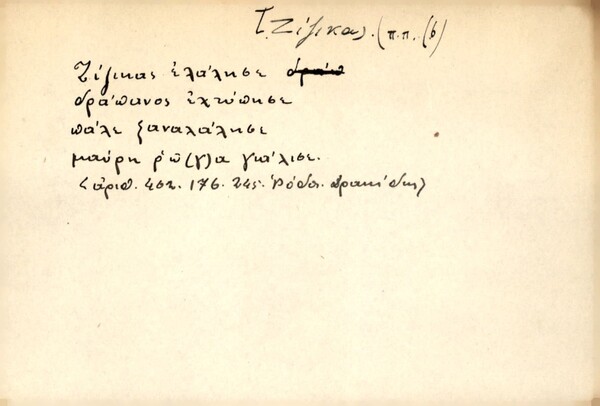 Τζίζικας. (π.π. (6)
Ζίζικας ἐλάλησε
δράπανος ἐχτύπησε
πάλε ξαναλάλησε
μαύρη ῥῶ(γ)α γυάλισε.
(ἀριθ. 462. 176. 245. Ῥόδος.